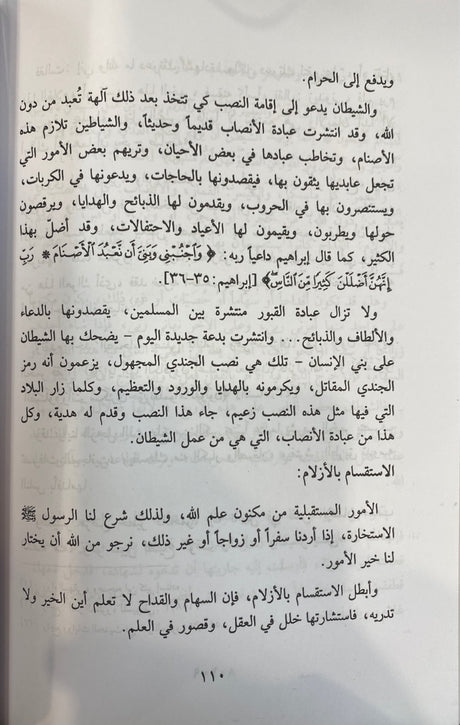 ويدفع إلى الحرام.
والشيطان يدعو إلى إقامة النصب كي تتخذ بعد ذلك آلهة تُعبد من دون
الله، وقد انتشرت عبادة الأنصاب قديماً وحديثاً، والشياطين تلازم هذه
الأصنام، وتخاطب عبادها في بعض الأحيان، وتريهم بعض الأمور التي
تجعل عابديها يثقون بها، فيقصدونها بالحاجات، ويدعونها في الكربات،
ويستنصرون بها في الحروب، ويقدمون لها الذبائح والهدايا، ويرقصون
حولها ويطربون، ويقيمون لها الأعياد والاحتفالات، وقد أضلّ بهذا
الكثير، كما قال إبراهيم داعياً ربه: ﴿ وَٱجْنُبْنِى وَبَنِىَّ أَن نَّعْبُدَ ٱلْأَصْنَامَ * رَبِّ
إِنَّهُنَّ أَضْلَلْنَ كَثِيرًا مِّنَ ٱلنَّاسِ ﴾ [إبراهيم: ٣٥-٣٦].
ولا تزال عبادة القبور منتشرة بين المسلمين، يقصدونها بالدعاء
والألطاف والذبائح... وانتشرت بدعة جديدة اليوم – يضحك بها الشيطان
على بني الإنسان – تلك هي نصب الجندي المجهول، يزعمون أنه رمز
الجندي المقاتل، ويكرمونه بالهدايا والورود والتعظيم، وكلما زار البلاد
التي فيها مثل هذه النصب زعيم، جاء هذا النصب وقدم له هدية، وكل
هذا من عبادة الأنصاب، التي هي من عمل الشيطان.
الاستقسام بالأزلام:
الأمور المستقبلية من مكنون علم الله، ولذلك شرع لنا الرسول ﷺ
الاستخارة، إذا أردنا سفراً أو زواجاً أو غير ذلك، نرجو من الله أن يختار
لنا خير الأمور.
وأبطل الاستقسام بالأزلام، فإن السهام والقداح لا تعلم أين الخير ولا
تدريه، فاستشارتها خلل في العقل، وقصور في العلم.
١١٠